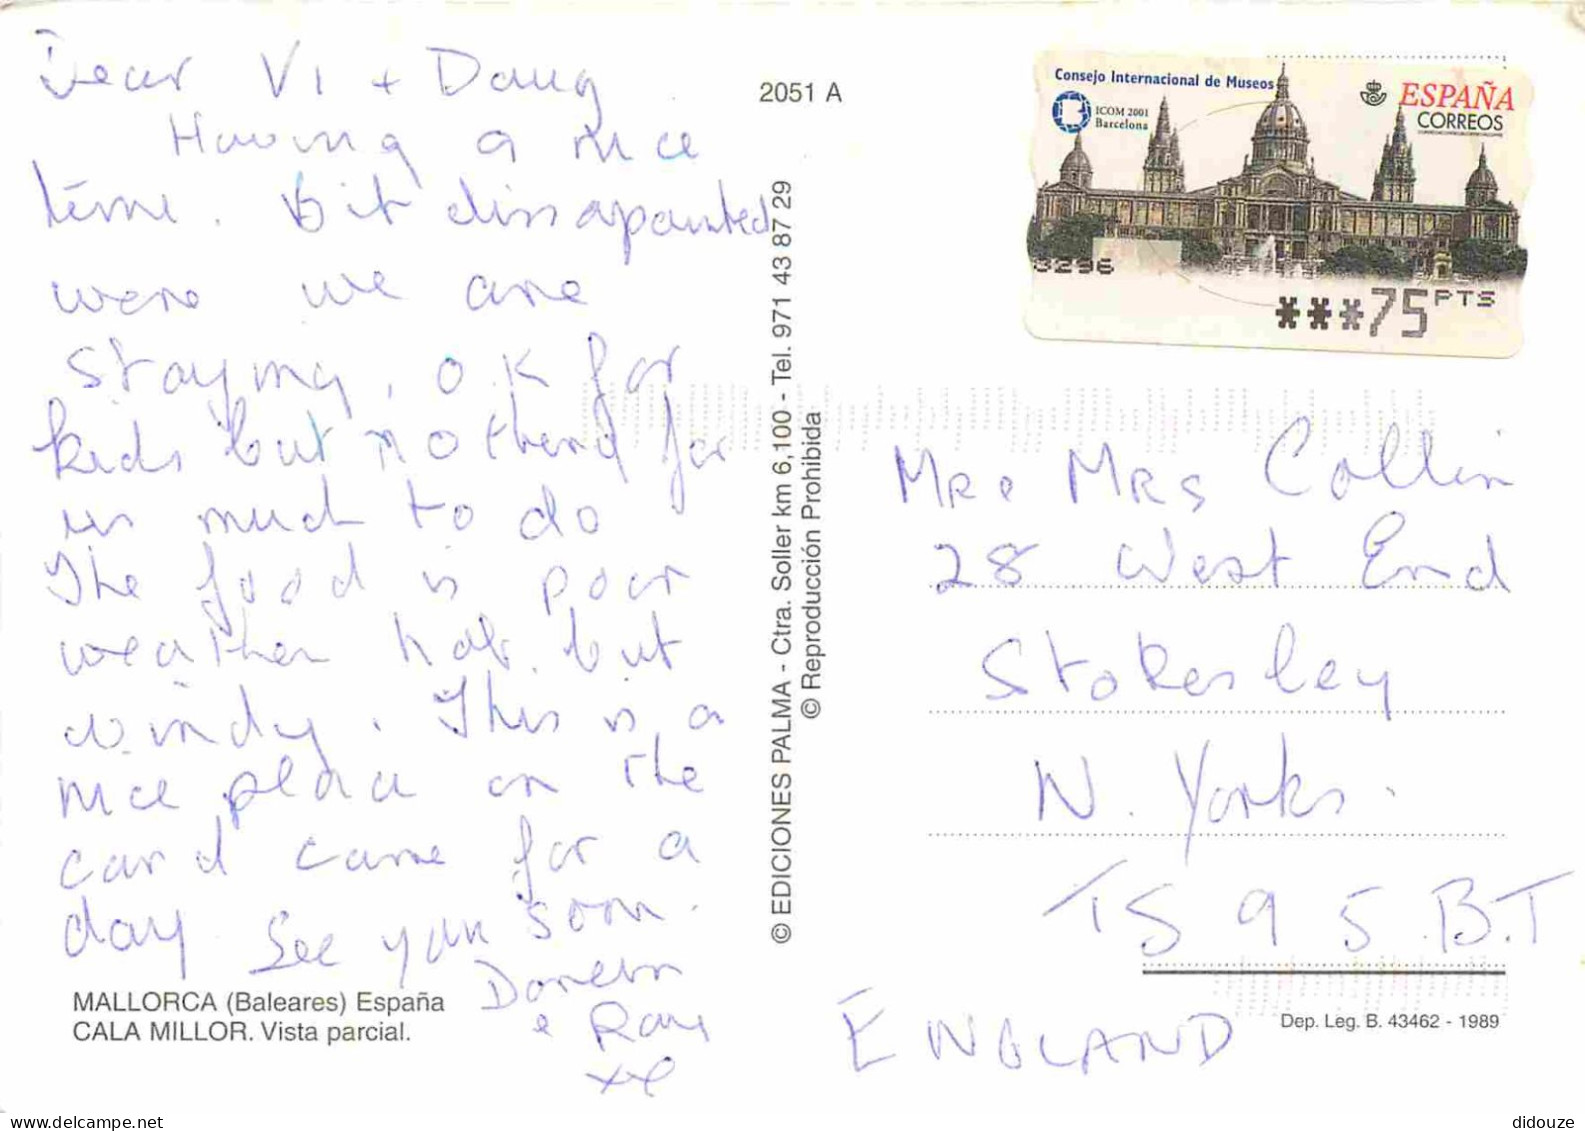 Dear Vi + Doug
Having a nice
time. Bit dissapointed
were we are
staying, OK for
kids but nothing for
us much to do
The food is poor
weather hot but
windy. This is a
nice place on the
card came for a
day. See you soon.
Doreen
& Ray
xx
MALLORCA (Baleares) España
CALA MILLOR. Vista parcial.
2051 A
© EDICIONES PALMA - Ctra. Soller km 6,100 - Tel. 971 43 87 29
© Reproducción Prohibida
Consejo Internacional de Museos
ICOM 2001
Barcelona
ESPAÑA
CORREOS
3296
***75 PTS
Mr & Mrs Collin
28 West End
Stokesley
N. Yorks.
TS9 5BT
ENGLAND
Dep. Leg. B. 43462 - 1989
www.delcampe.net
didouze